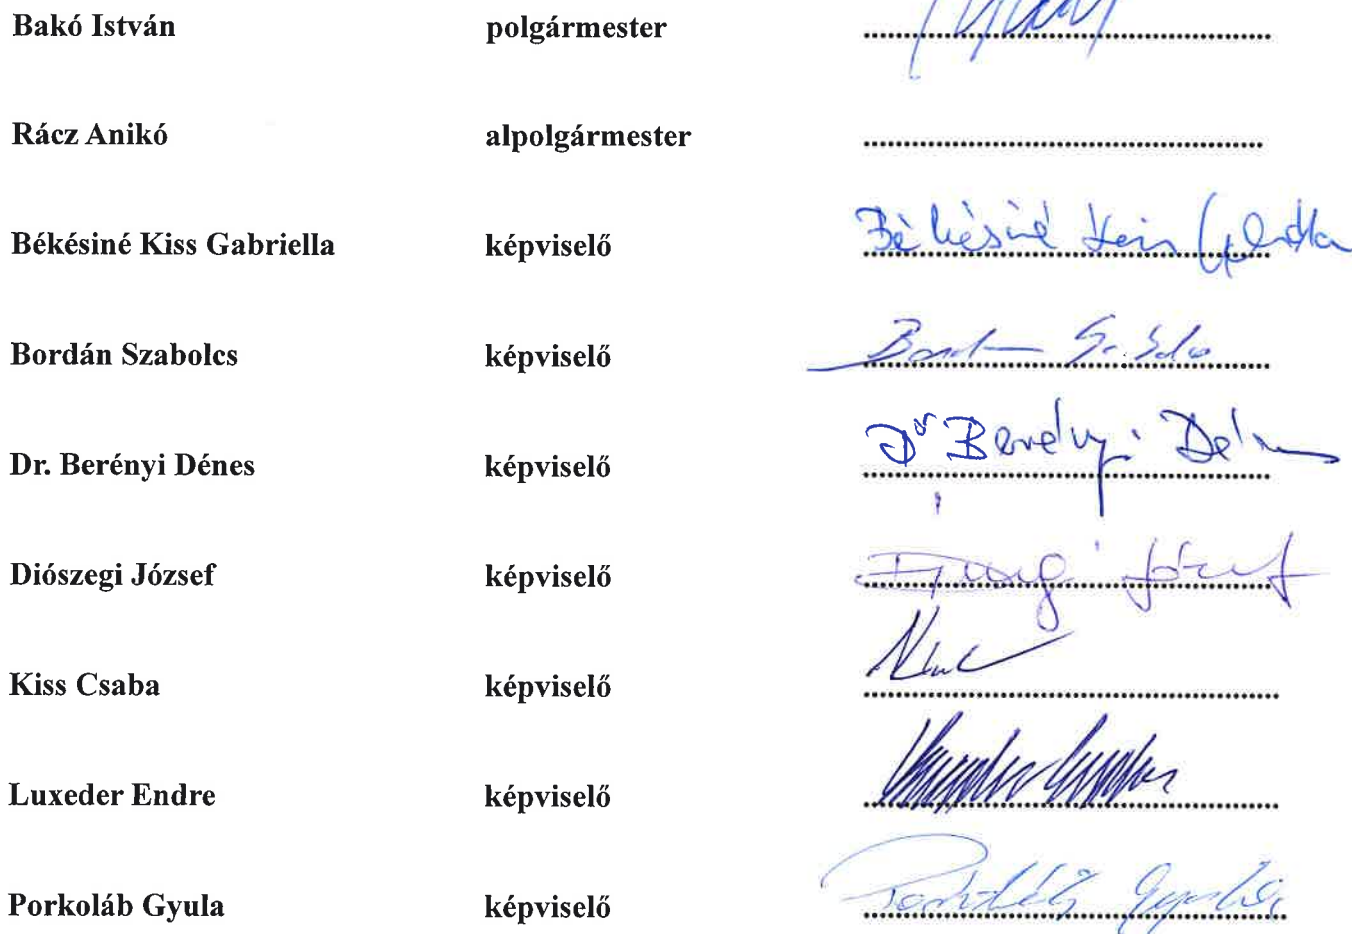 Bakó István polgármester
Rácz Anikó alpolgármester ........................................................
Békésiné Kiss Gabriella képviselő Békésiné Kiss Gabriella
Bordán Szabolcs képviselő
Dr. Berényi Dénes képviselő Dr Berényi Dénes
Diószegi József képviselő József
Kiss Csaba képviselő
Luxeder Endre képviselő
Porkoláb Gyula képviselő Porkoláb Gyula